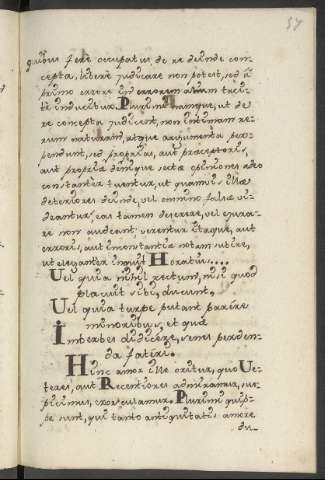 57
quibus fere occupatus de re deinde con-
cepta, liberè judicare non potest, sed à
primo errore in errorem alium facilè
inducitur. Plurimi namque, ut de
re concepta judicent, non intimam re-
rum naturam, atque argumenta per-
pendunt, sed proprias, aut præceptoris,
aut propriæ denique sectæ opiniones adeo
constanter tuentur, ut quamvis illæ
deteriores deinde, vel omnino falsæ vi-
deantur, eas tamen deserere, vel ejura-
re non audeant; verentur itaque, aut
erroris, aut inconstantiæ notam subire,
ut eleganter inquit Horatius....
Vel quia nihil rectum, nisi quod
placuit sibi, ducunt.
Vel quia turpe putant parere
minoribus, et quæ
Imberbes didicere, senes perden-
da fateri.
Hinc amor ille oritur, quo Ve-
teres, aut Recentiores admiramur, sus-
picimus, exosculamur. Plurimi quip-
pe sunt, qui tanto antiquitatis amore
du-